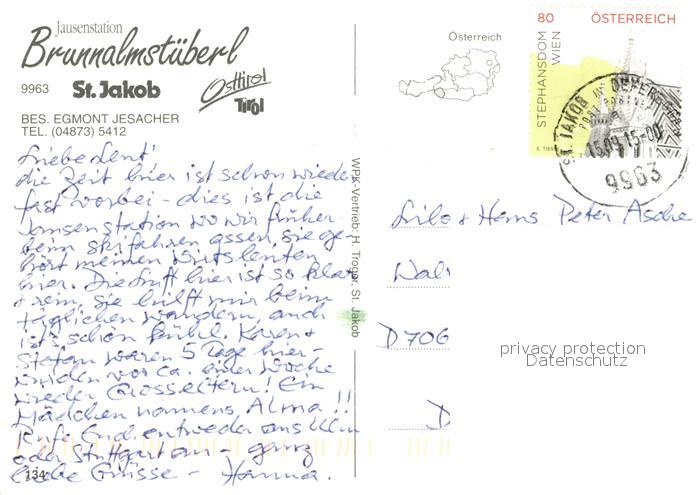 Jausenstation
Brunnalmstüberl
9963 St. Jakob Osttirol
Tirol
BES. EGMONT JESACHER
TEL. (04873) 5412
Liebe Leut'
die Zeit hier ist schon wieder
fast vorbei - dies ist die
Jausenstation wo wir früher
beim skifahren assen, sie ge-
hört meinen Wirtsleuten
hier. Die Luft hier ist so klar
+ rein, sie hilft mir beim
täglichen wandern, auch
ist's schön kühl. Karen +
Stefan waren 5 Tage hier -
wurden vor ca. einer Woche
wieder Grosseltern! Ein
Mädchen namens Alma!!
Rufe Euch entweder aus Ulm
oder Stuttgart an - ganz
liebe Grüsse - Hanna.
134
WPK-Vertrieb: H. Trogor, St. Jakob
Österreich
80 ÖSTERREICH
STEPHANSDOM
WIEN
ST. JAKOB IN DEFEREGGEN
POST PARTNER
15.09.15-00
9963
Lilo + Hans Peter Asche
D 706
D
privacy protection
Datenschutz